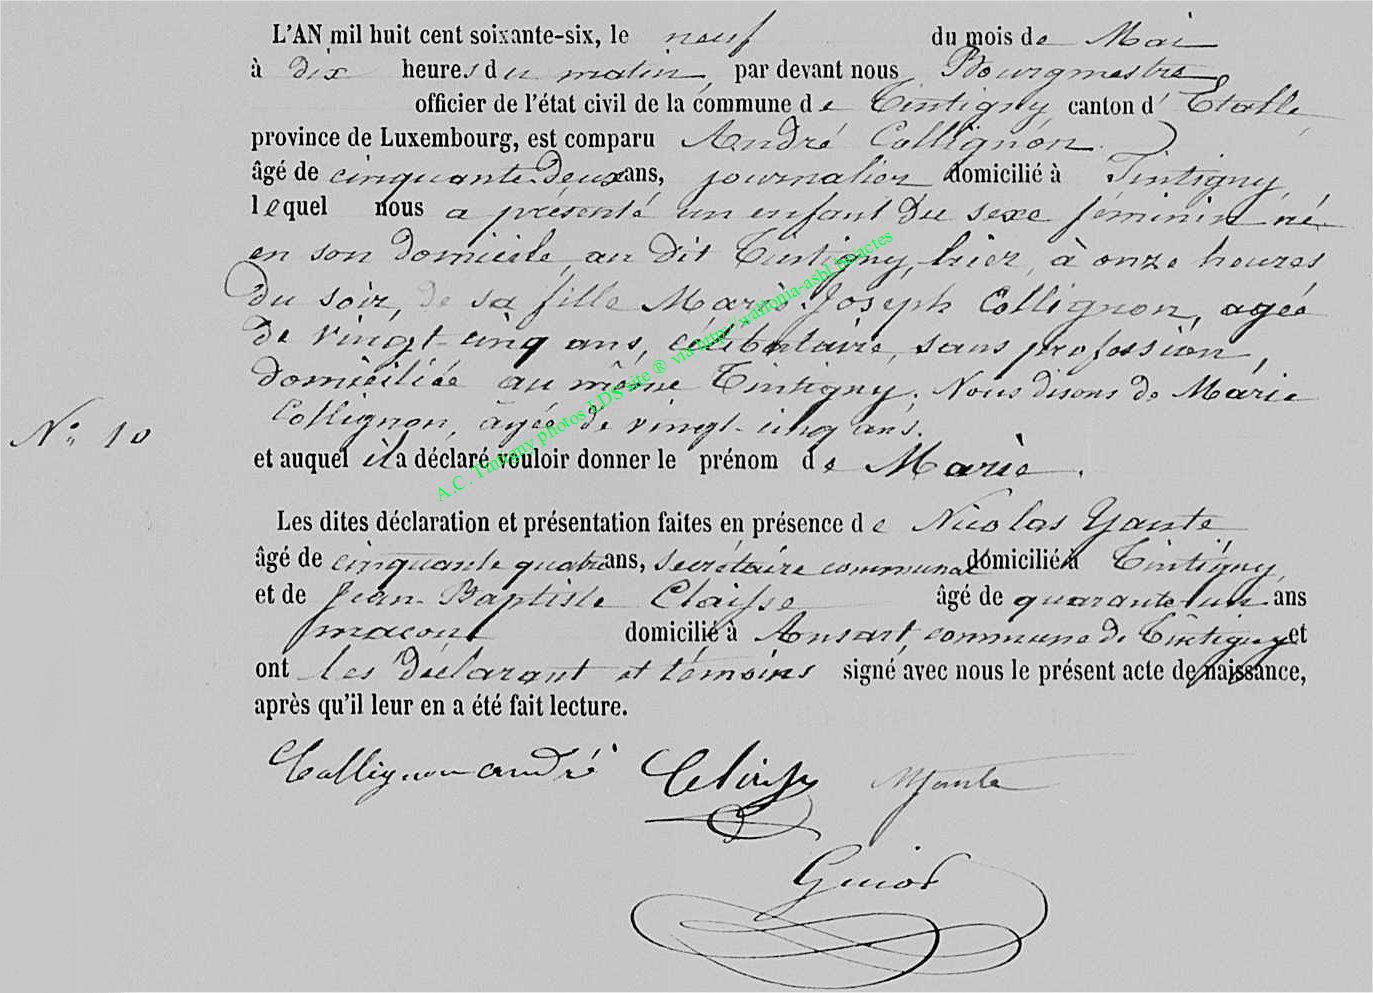 L'AN mil huit cent soixante-six, le neuf du mois de Mai
à dix heures du matin, par devant nous Bourgmestre,
officier de l'état civil de la commune de Tintigny, canton d'Etalle,
province de Luxembourg, est comparu André Collignon.
âgé de cinquante-deux ans, journalier domicilié à Tintigny,
lequel nous a présenté un enfant du sexe féminin né
en son domicile, au dit Tintigny, hier, à onze heures
du soir, de sa fille Marie-Joseph Collignon, agée
de vingt-cinq ans, célibataire, sans profession,
domiciliée au même Tintigny. Nous disons de Marie
Collignon, âgée de vingt-cinq ans.
N° 10
et auquel il a déclaré vouloir donner le prénom de Marie.
Les dites déclaration et présentation faites en présence de Nicolas Yante
âgé de cinquante quatre ans, secrétaire communal domicilié à Tintigny,
et de Jean-Baptiste Claisse âgé de quarante-un ans
maçon domicilié à Ansart, commune de Tintigny et
ont les déclarant et témoins signé avec nous le présent acte de naissance,
après qu'il leur en a été fait lecture.
Collignon andré NYante
A.C. Tintigny photos LDS site ® via http://wallonia-asbl.be/actes